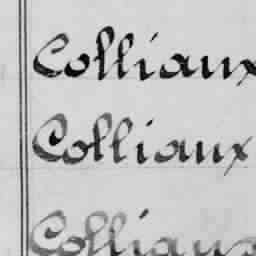 Colliaux
Colliaux
Colliaux